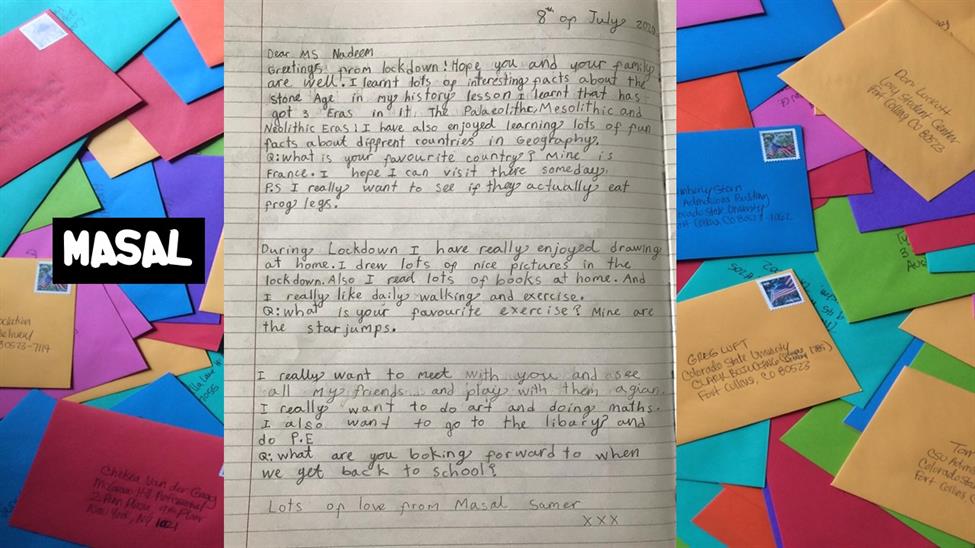 MASAL
8th of July 2020
Dear MS Nadeem
Greetings from lockdown! Hope you and your family
are well! I learnt lots of interesting facts about the
stone Age in my history lesson I learnt that has
got 3 Eras in it. The Palaeolithic, Mesolithic and
Neolithic Eras! I have also enjoyed learning lots of fun
facts about different countries in Geography.
Q: what is your favourite country? Mine is
France. I hope I can visit there someday.
P.S I really want to see if they actually eat
frog legs.
During Lockdown I have really enjoyed drawing
at home. I drew lots of nice pictures in the
lockdown. Also I read lots of books at home. And
I really like daily walking and exercise.
Q: what is your favourite exercise? Mine are
the star jumps.
I really want to meet with you and see
all my friends and play with them agian.
I really want to do art and doing maths.
I also want to go to the libary and
do P.E
Q: what are you boking forward to when
we get back to school?
Lots of love from Masal Samer
xxx
ociation
elivery
80523-7119
lla Lane #
2055
Chelsea Van der Gaag
McGraw-Hill Professional
2 Penn Plaza, 9th Floor
New York, NY
Don
Lory Student Center
Fort Collins CO 80523
mberly Stern
Admissions Building
olorado State University
Collins, CO 80523-1062
GREG LUFT
Colorado State University
CLARK BUILDING
Fort Collins, CO 80523
Tom
CSU Adm
Colorado Sta
Fort Collins